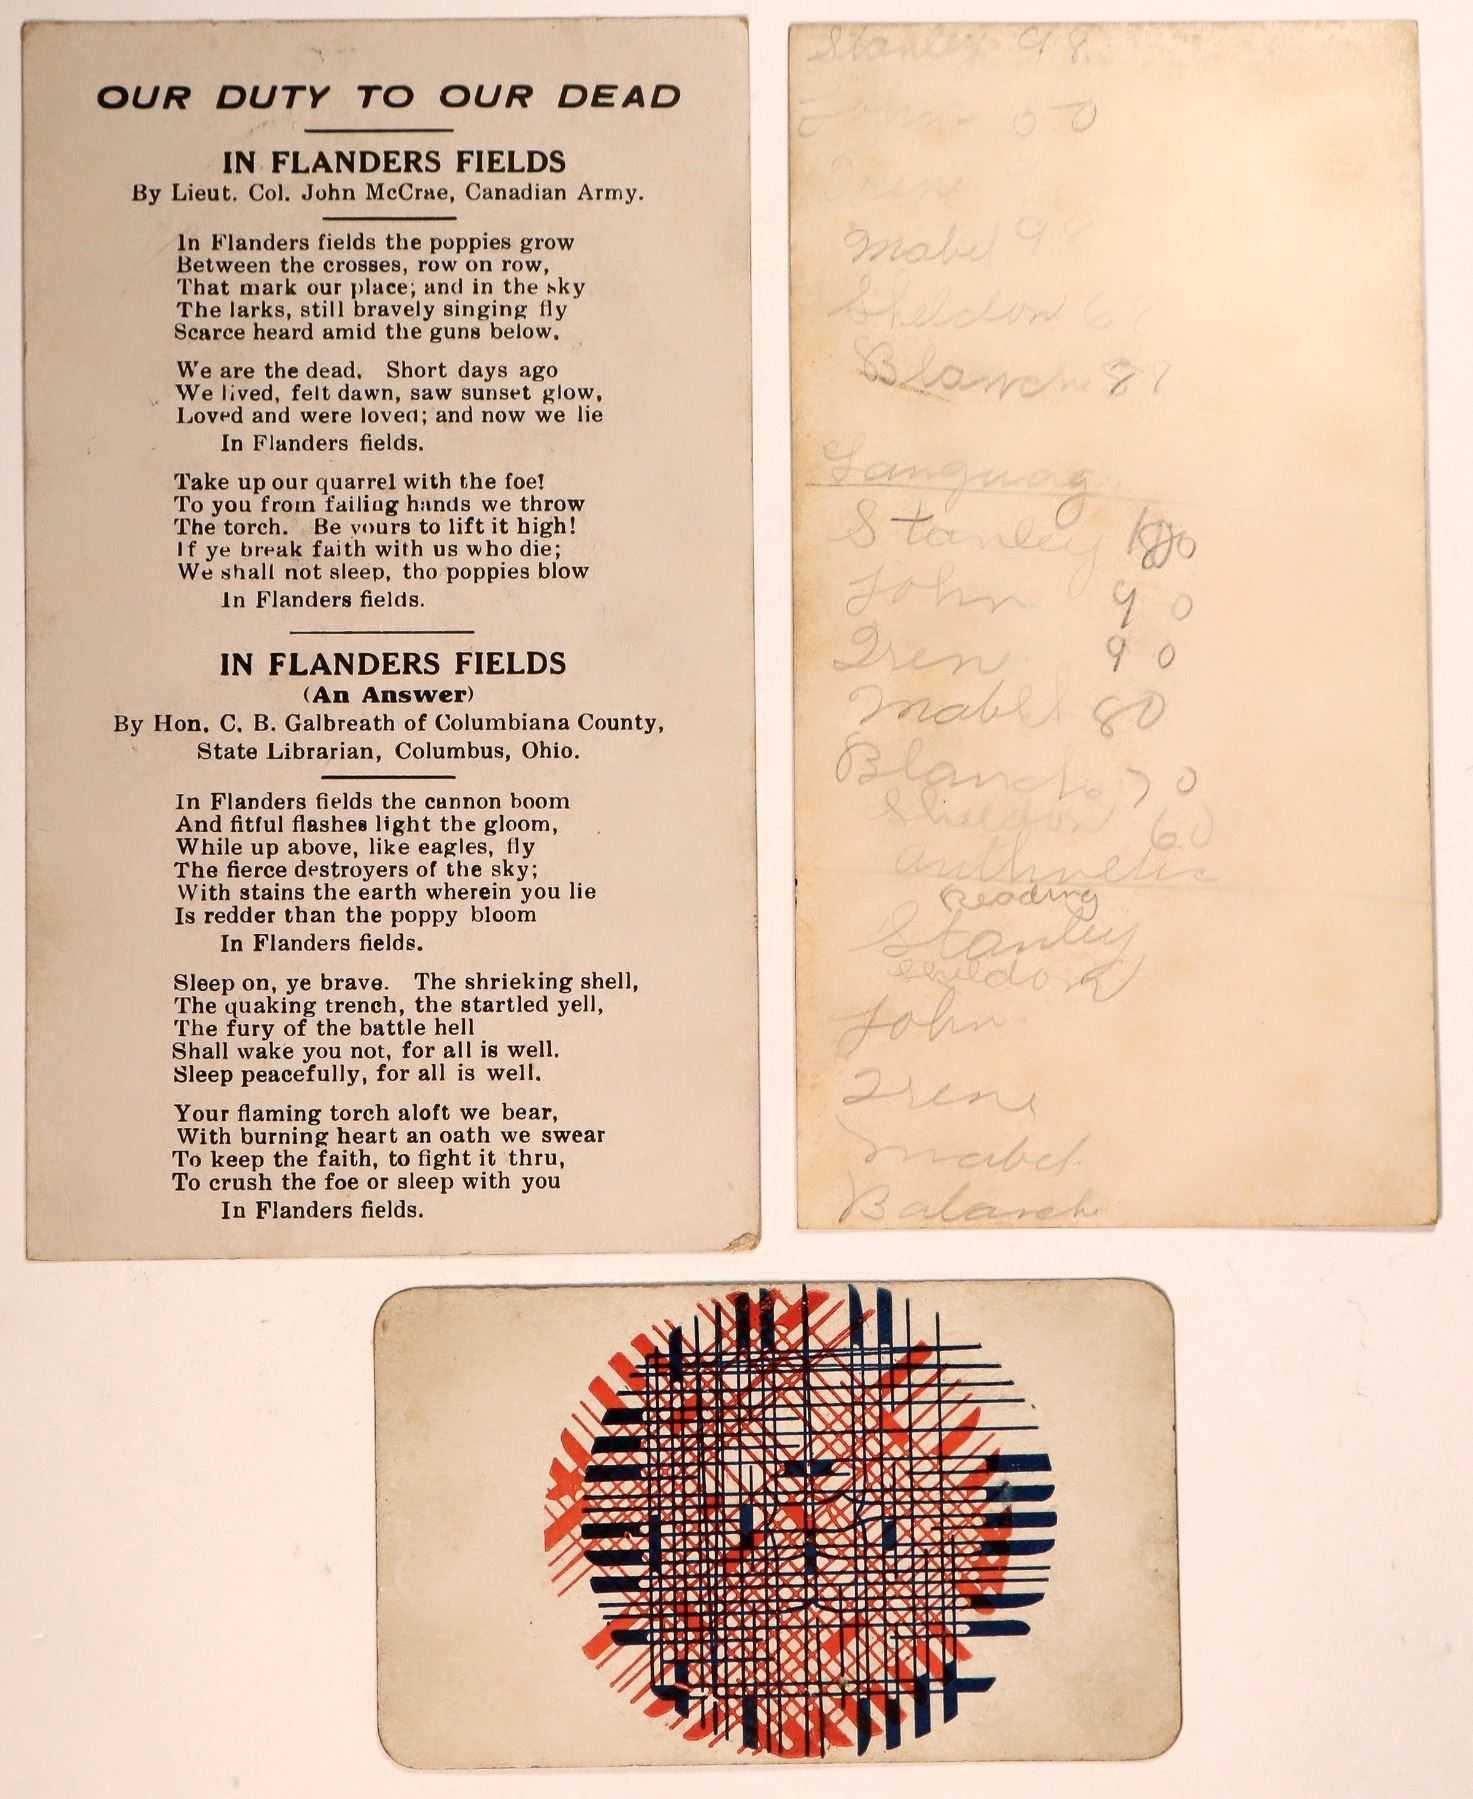 OUR DUTY TO OUR DEAD
IN FLANDERS FIELDS
By Lieut. Col. John McCrae, Canadian Army.
In Flanders fields the poppies grow
Between the crosses, row on row,
That mark our place; and in the sky
The larks, still bravely singing fly
Scarce heard amid the guns below.
We are the dead. Short days ago
We lived, felt dawn, saw sunset glow,
Loved and were loved; and now we lie
In Flanders fields.
Take up our quarrel with the foe!
To you from failing hands we throw
The torch. Be yours to lift it high!
If ye break faith with us who die;
We shall not sleep, tho poppies blow
In Flanders fields.
IN FLANDERS FIELDS
(An Answer)
By Hon. C. B. Galbreath of Columbiana County,
State Librarian, Columbus, Ohio.
In Flanders fields the cannon boom
And fitful flashes light the gloom,
While up above, like eagles, fly
The fierce destroyers of the sky;
With stains the earth wherein you lie
Is redder than the poppy bloom
In Flanders fields.
Sleep on, ye brave. The shrieking shell,
The quaking trench, the startled yell,
The fury of the battle hell
Shall wake you not, for all is well.
Sleep peacefully, for all is well.
Your flaming torch aloft we bear,
With burning heart an oath we swear
To keep the faith, to fight it thru,
To crush the foe or sleep with you
In Flanders fields.
Stanley 98
John
Mabel 98
Sheldon
Blanche 87
Languag
Stanley
John 90
Iren 90
Mabel 80
Blanche 70
Sheldon 60
Reading
Stanley
Sheldon
John
Irene
Mabel
Balanche